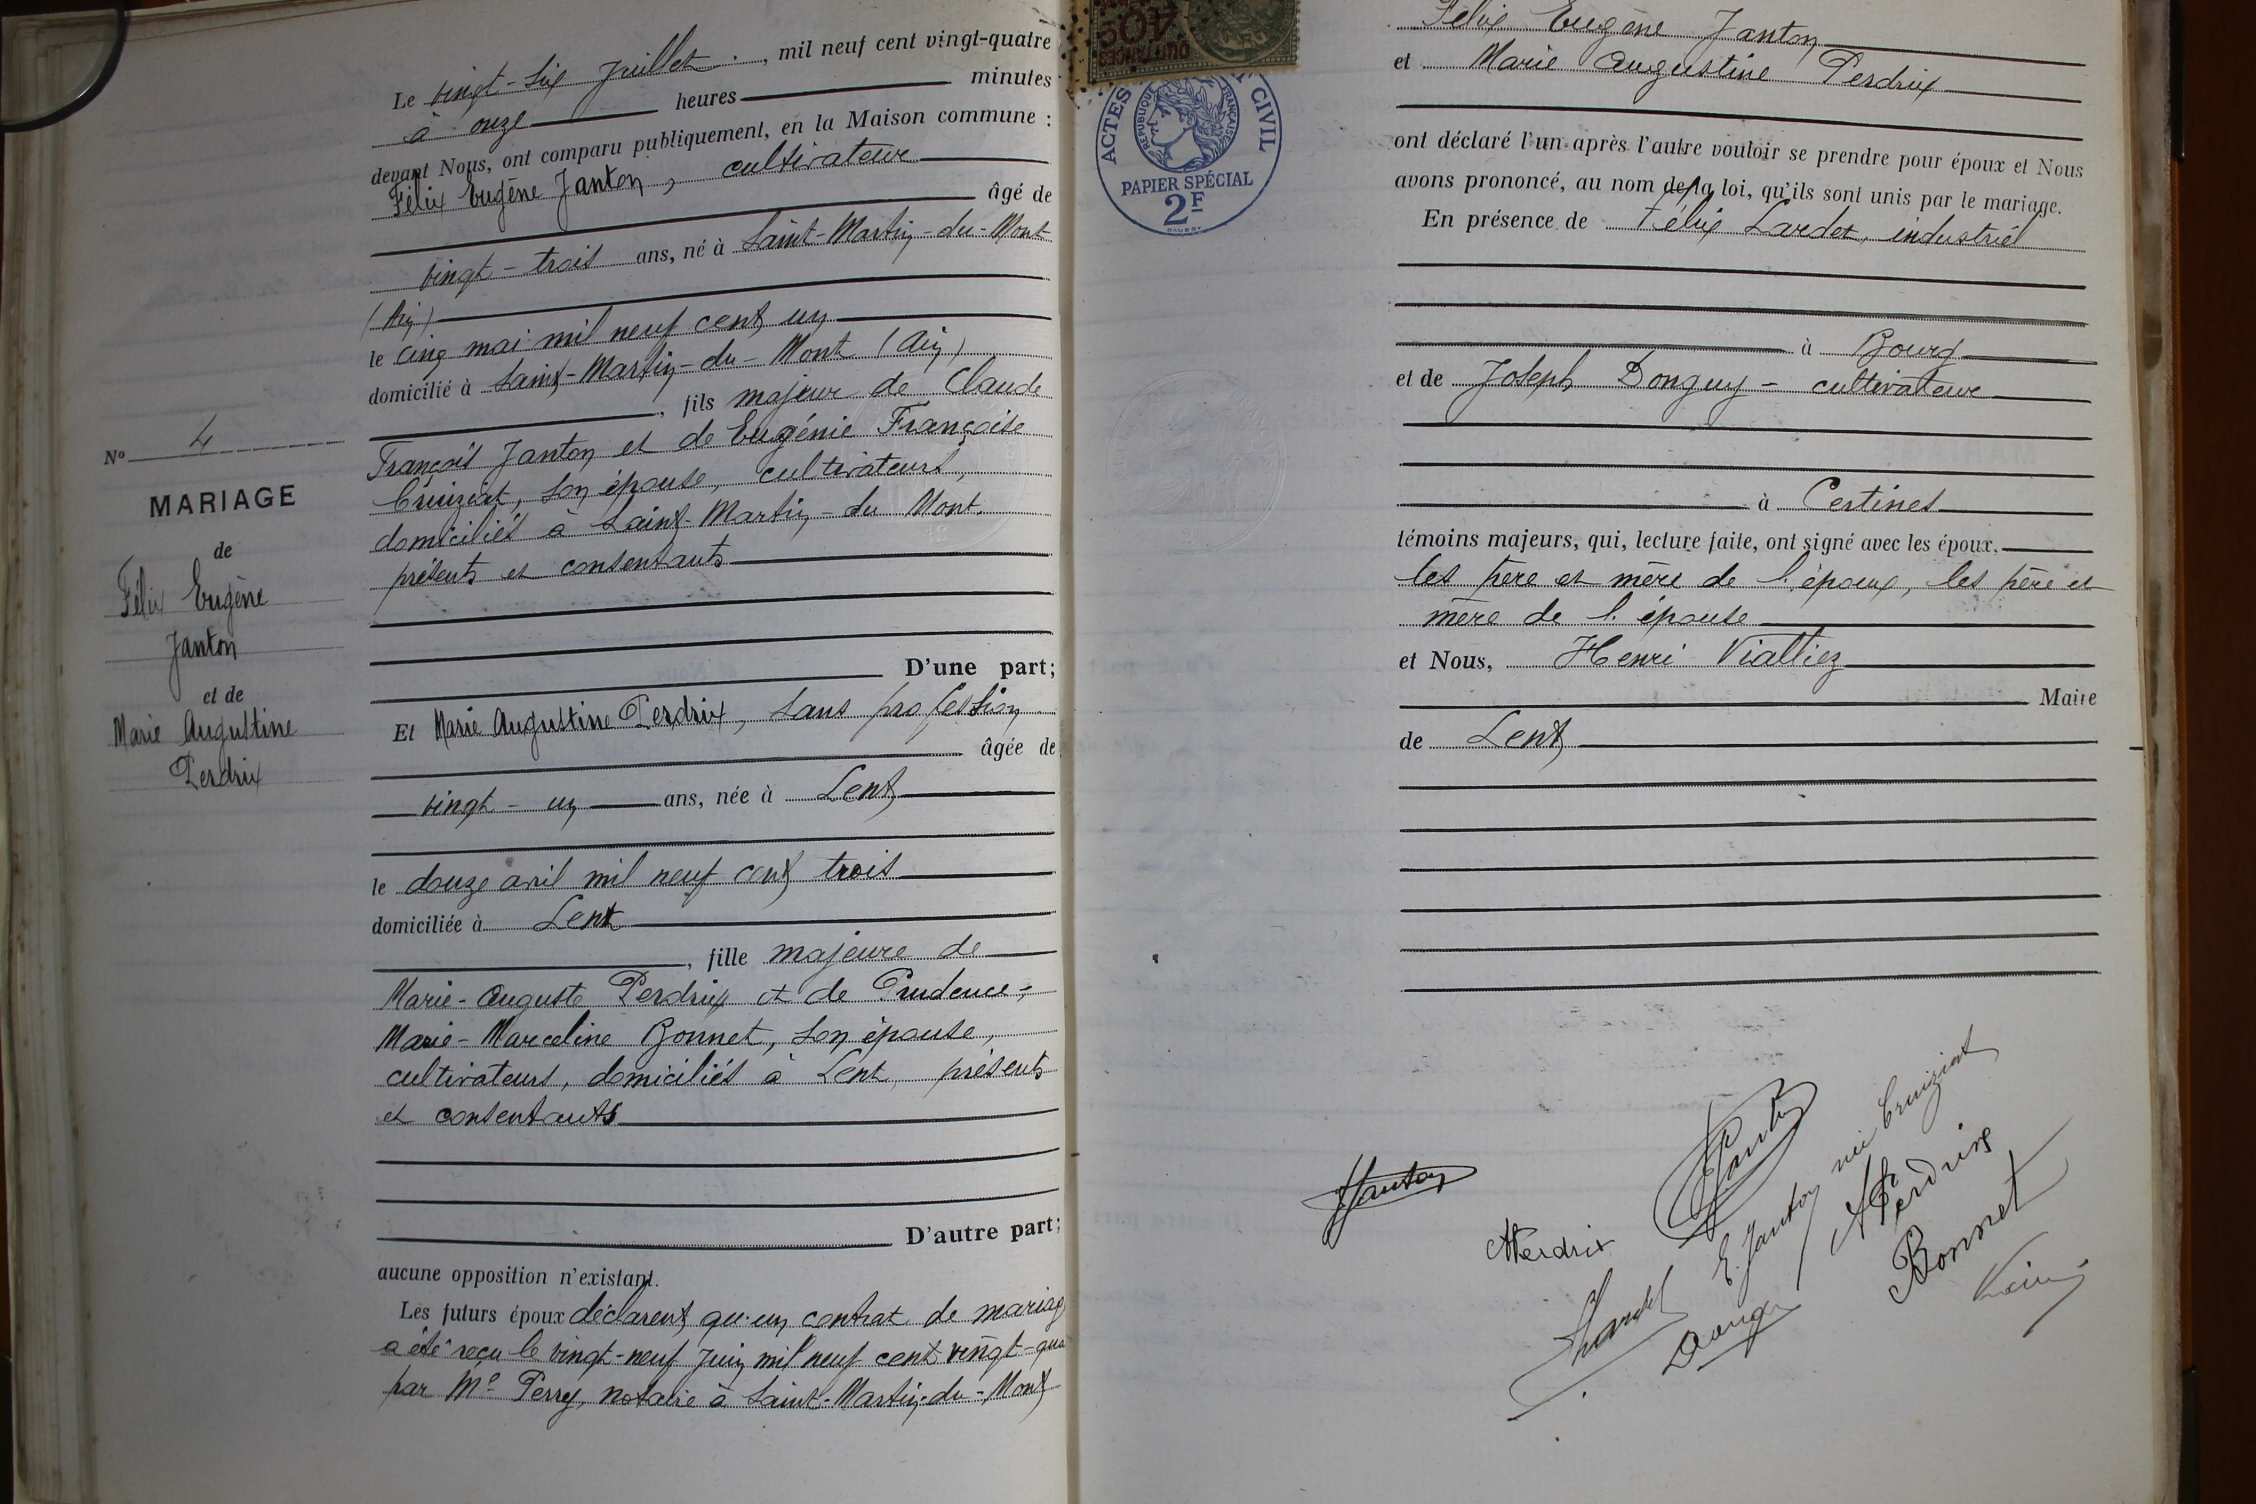 Le vingt-six Juillet, mil neuf cent vingt-quatre
à onze heures minutes
devant Nous, ont comparu publiquement, en la Maison commune :
Félix Eugène Janton, cultivateur
âgé de
vingt-trois ans, né à Saint-Martin-du-Mont
(Ain)
le cinq mai mil neuf cent un
domicilié à Saint-Martin-du-Mont (Ain)
, fils majeur de Claude
François Janton et de Eugénie Françoise
Cruiziat, son épouse, cultivateurs,
domiciliés à Saint-Martin-du Mont.
présents et consentants
D'une part;
Et Marie Augustine Perdrix, sans profession
âgée de
vingt-un ans, née à Lent
le douze avril mil neuf cent trois
domiciliée à Lent
, fille majeure de
Marie-Auguste Perdrix et de Prudence-
Marie-Marceline Bonnet, son épouse,
cultivateurs, domiciliés à Lent, présents
et consentants
D'autre part;
aucune opposition n'existant.
Les futurs époux déclarent qu'un contrat de mariag
a été reçu le vingt-neuf Juin mil neuf cent vingt-qua
par Me Perry, notaire à Saint-Martin-du-Mont
No 4
MARIAGE
de
Félix Eugène
Janton
et de
Marie Augustine
Perdrix
ACTES CIVIL
RÉPUBLIQUE FRANÇAISE
PAPIER SPÉCIAL
2F
Félix Eugène Janton
et Marie Augustine Perdrix
ont déclaré l'un après l'autre vouloir se prendre pour époux et Nous
avons prononcé, au nom de la loi, qu'ils sont unis par le mariage.
En présence de Félix Lardet, industriel
à Bourg
et de Joseph Donguy - cultivateur
à Certines
témoins majeurs, qui, lecture faite, ont signé avec les époux,
les père et mère de l'époux, les père et
mère de l'épouse
et Nous, Henri Vialliez
Maire
de Lent
Janton
Perdrix
Janton
E. Janton née Cruiziat
A Perdrix
Bonnet
Lardet